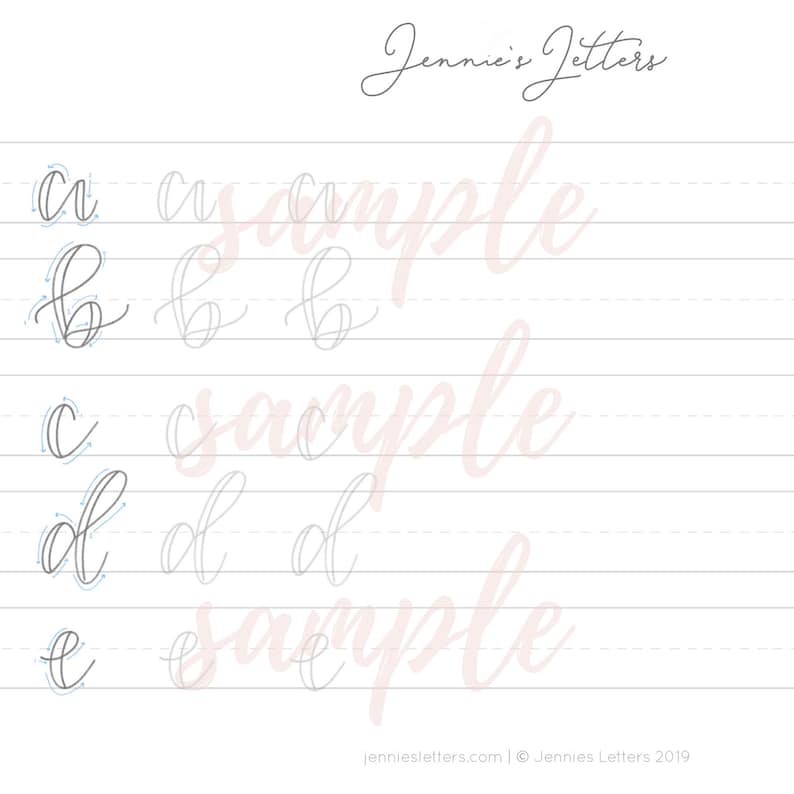 Jennie's Letters
a a a
sample
b b b
c c c
sample
d d d
e e e
sample
jenniesletters.com | © Jennies Letters 2019